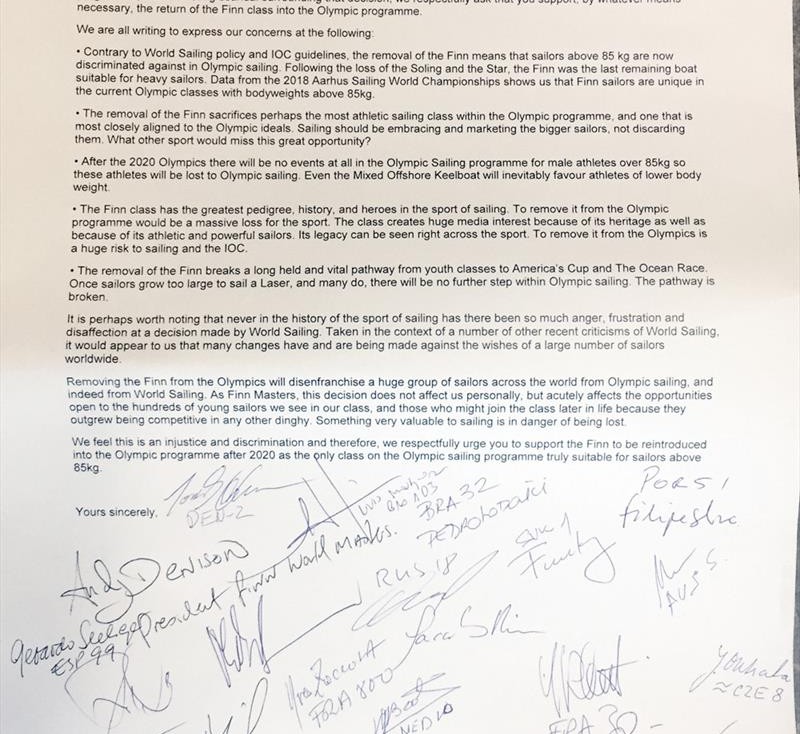 necessary, the return of the Finn class into the Olympic programme.
We are all writing to express our concerns at the following:
• Contrary to World Sailing policy and IOC guidelines, the removal of the Finn means that sailors above 85 kg are now
discriminated against in Olympic sailing. Following the loss of the Soling and the Star, the Finn was the last remaining boat
suitable for heavy sailors. Data from the 2018 Aarhus Sailing World Championships shows us that Finn sailors are unique in
the current Olympic classes with bodyweights above 85kg.
• The removal of the Finn sacrifices perhaps the most athletic sailing class within the Olympic programme, and one that is
most closely aligned to the Olympic ideals. Sailing should be embracing and marketing the bigger sailors, not discarding
them. What other sport would miss this great opportunity?
• After the 2020 Olympics there will be no events at all in the Olympic Sailing programme for male athletes over 85kg so
these athletes will be lost to Olympic sailing. Even the Mixed Offshore Keelboat will inevitably favour athletes of lower body
weight.
• The Finn class has the greatest pedigree, history, and heroes in the sport of sailing. To remove it from the Olympic
programme would be a massive loss for the sport. The class creates huge media interest because of its heritage as well as
because of its athletic and powerful sailors. Its legacy can be seen right across the sport. To remove it from the Olympics is
a huge risk to sailing and the IOC.
• The removal of the Finn breaks a long held and vital pathway from youth classes to America's Cup and The Ocean Race.
Once sailors grow too large to sail a Laser, and many do, there will be no further step within Olympic sailing. The pathway is
broken.
It is perhaps worth noting that never in the history of the sport of sailing has there been so much anger, frustration and
disaffection at a decision made by World Sailing. Taken in the context of a number of other recent criticisms of World Sailing,
it would appear to us that many changes have and are being made against the wishes of a large number of sailors
worldwide.
Removing the Finn from the Olympics will disenfranchise a huge group of sailors across the world from Olympic sailing, and
indeed from World Sailing. As Finn Masters, this decision does not affect us personally, but acutely affects the opportunities
open to the hundreds of young sailors we see in our class, and those who might join the class later in life because they
outgrew being competitive in any other dinghy. Something very valuable to sailing is in danger of being lost.
We feel this is an injustice and discrimination and therefore, we respectfully urge you to support the Finn to be reintroduced
into the Olympic programme after 2020 as the only class on the Olympic sailing programme truly suitable for sailors above
85kg.
Yours sincerely,
DEN-2
BRA 32
POR 51
Andy DENISON
President Finn World Masters.
RUS 18
AUS 5
Gerardo Seeliger
ESP 99
FRA 800
CZE 8
NED 10
FRA 30